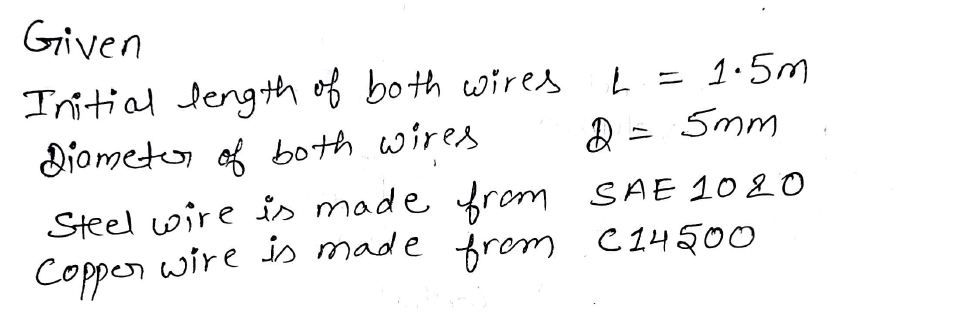 Given
Initial length of both wires L = 1.5m
Diameter of both wires D = 5mm
Steel wire is made from SAE 1020
Copper wire is made from C14500